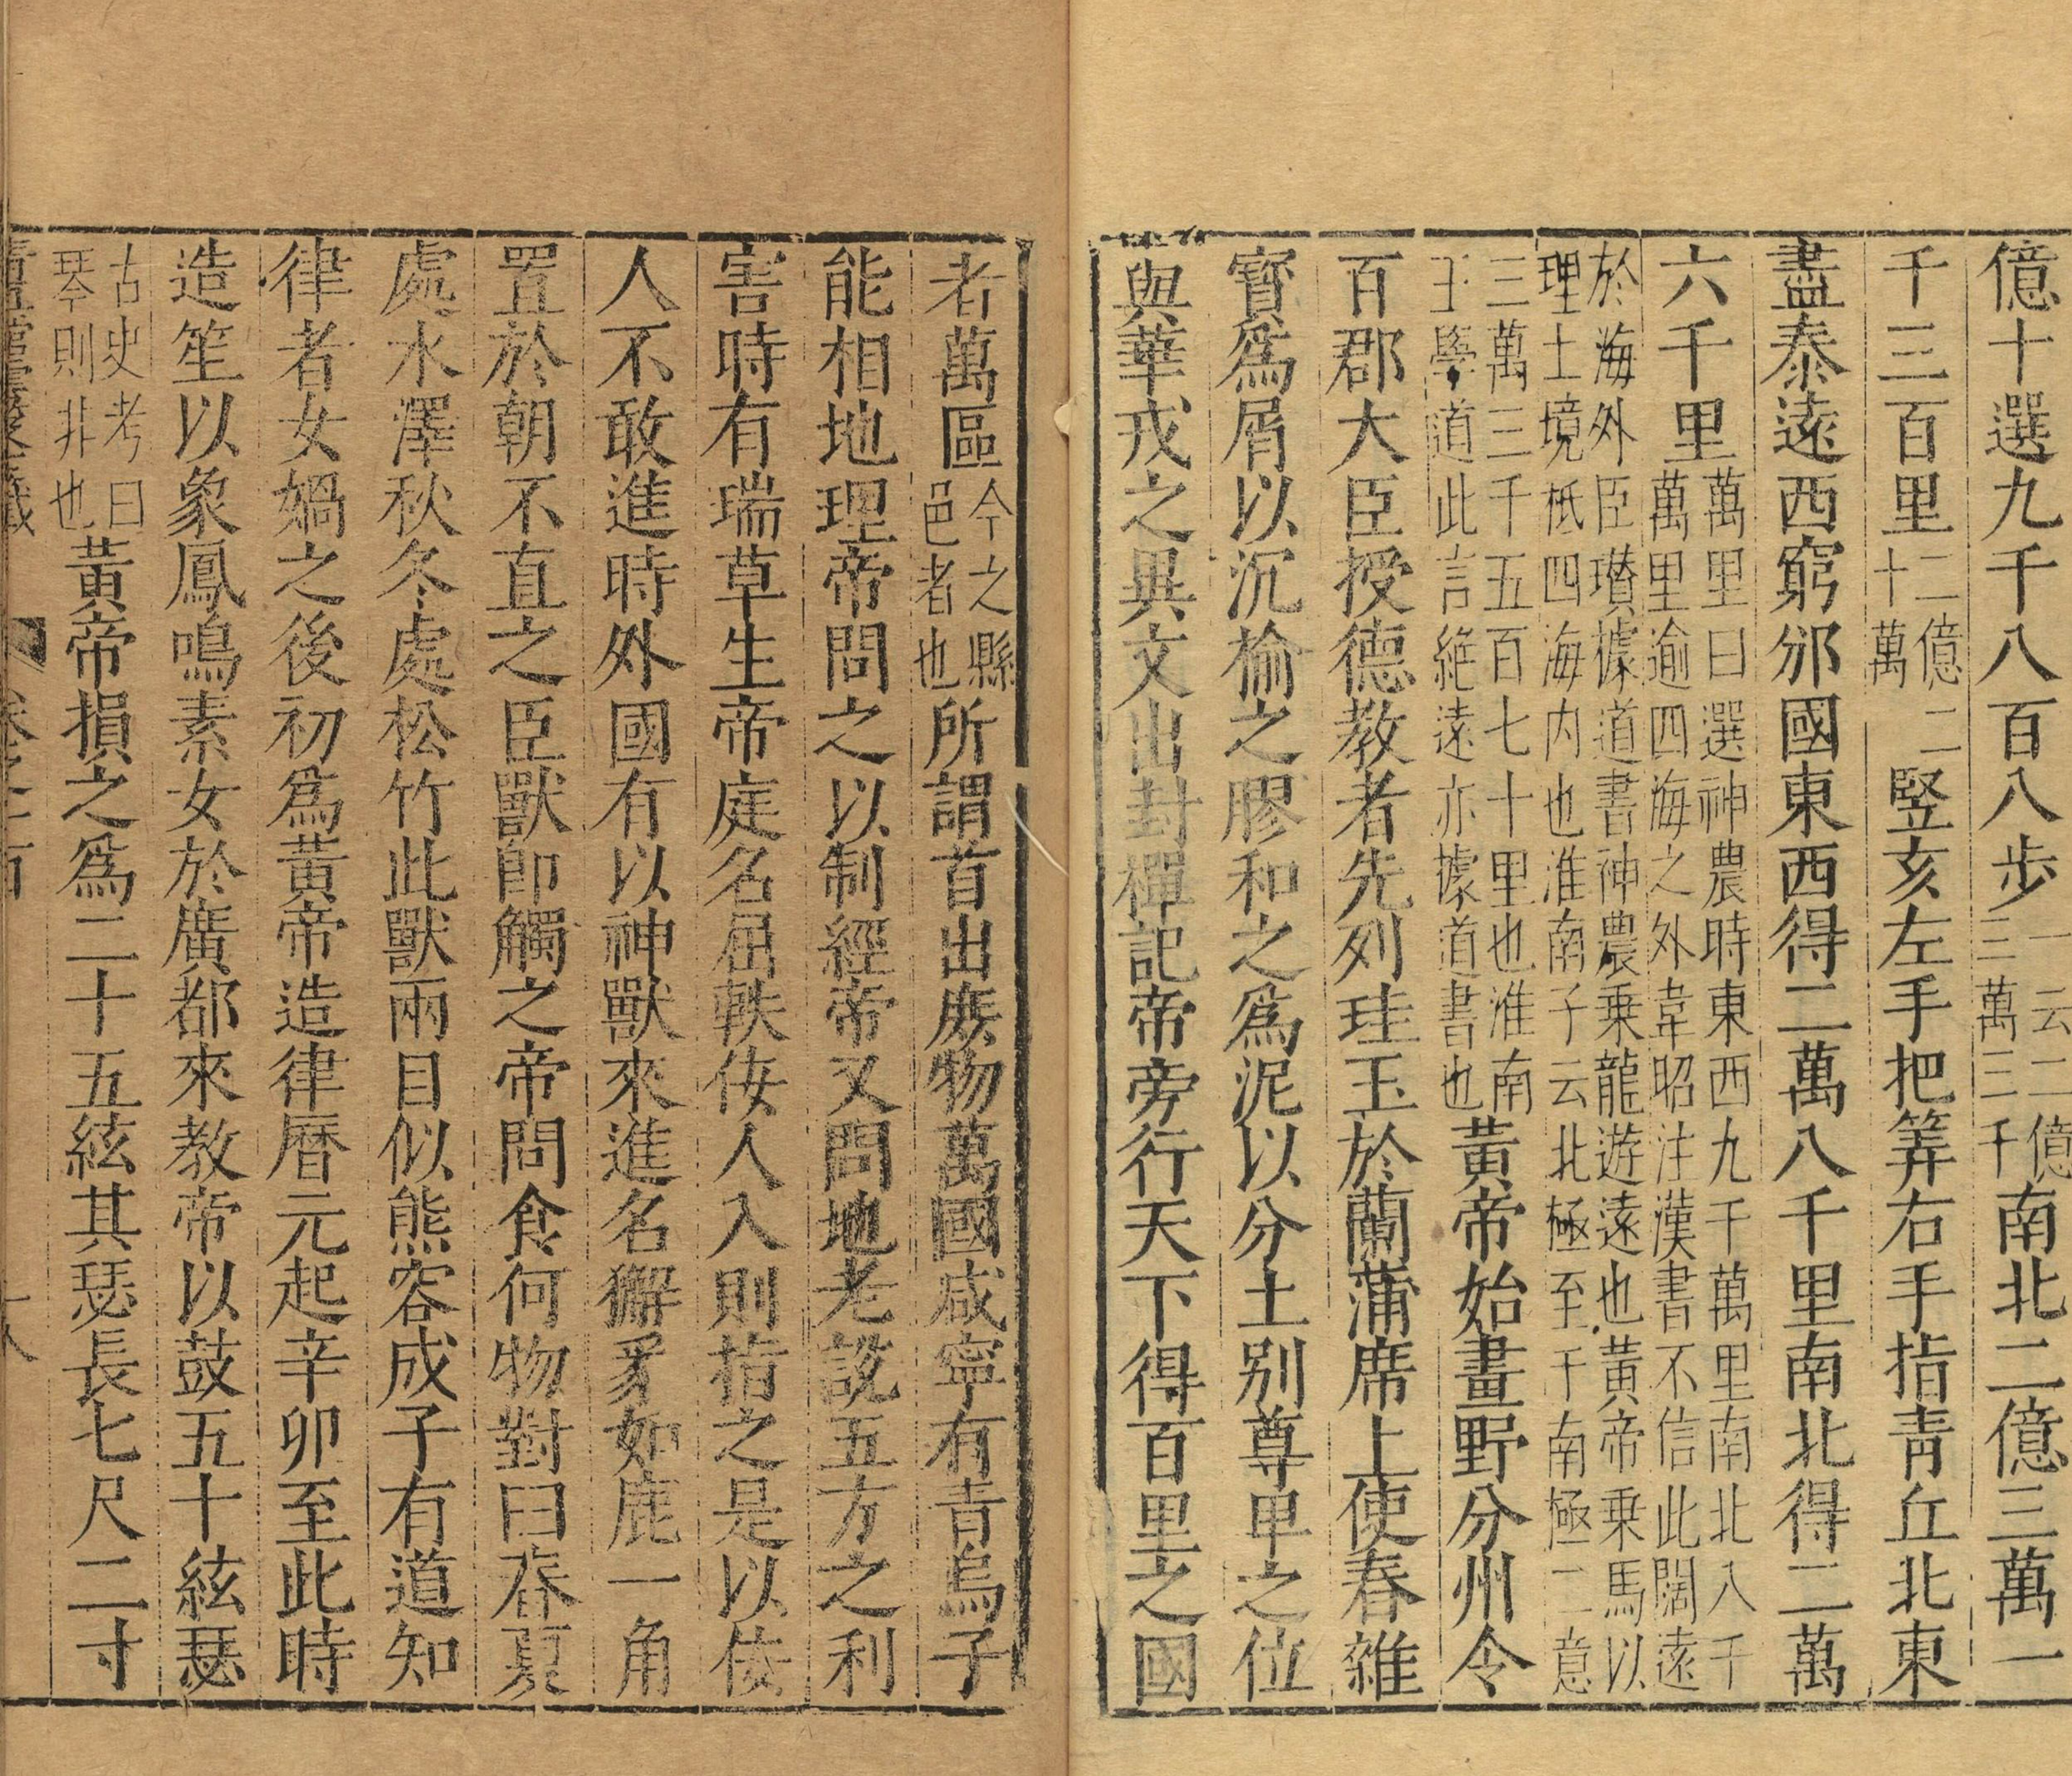 億十選九千八百八步一云二億三萬三千南北二億三萬一
千三百里二億二十萬豎亥左手把筭右手指青丘北東
盡泰遠西窮邠國東西得二萬八千里南北得二萬
六千里萬里曰選神農時東西九千萬里南北八千萬里逾四海之外韋昭注漢書不信此闊遠
於海外臣瓉據道書神農乗龍遊遠也黃帝乗馬以理土境柢四海内也淮南子云北極至于南極二億
三萬三千五百七十里也淮南王學道此言絶遠亦據道書也黃帝始畫野分州令
百郡大臣授德教者先列珪玉於蘭蒲席上使春雜
寳爲屑以沉榆之膠和之爲泥以分土别尊甲之位
與華戎之異文出封禪記帝旁行天下得百里之國
者萬區今之縣邑者也所謂首出庻物萬國咸寧有青烏子
能相地理帝問之以制經帝又問地老說五方之利
害時有瑞草生帝庭名屈軼佞人入則指之是以佞
人不敢進時外國有以神獸來進名獬豸如鹿一角
置於朝不直之臣獸即觸之帝問食何物對曰春夏
處水澤秋冬處松竹此獸兩目似熊容成子有道知
律者女媧之後初爲黃帝造律曆元起辛卯至此時
造笙以象鳳鳴素女於廣都來教帝以鼓五十絃瑟
古史考曰琴則非也黃帝損之爲二十五絃其瑟長七尺二寸